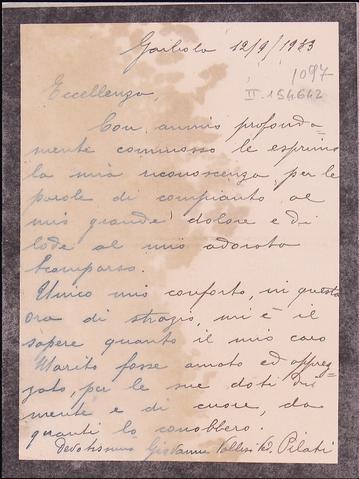 Gaibola 12/9/1933
1097
II-154642
Eccellenza,
Con animo profonda=
mente commosso le esprimo
la mia riconoscenza per le
parole di compianto al
mio grande dolore e di
lode al mio adorato
scomparso.
Unico mio conforto, in questa
ora di strazio, mi è il
sapere quanto il mio caro
Marito fosse amato ed apprez=
zato, per le sue doti di
mente e di cuore, da
quanti lo conobbero.
Devotissima Ved. Pilati